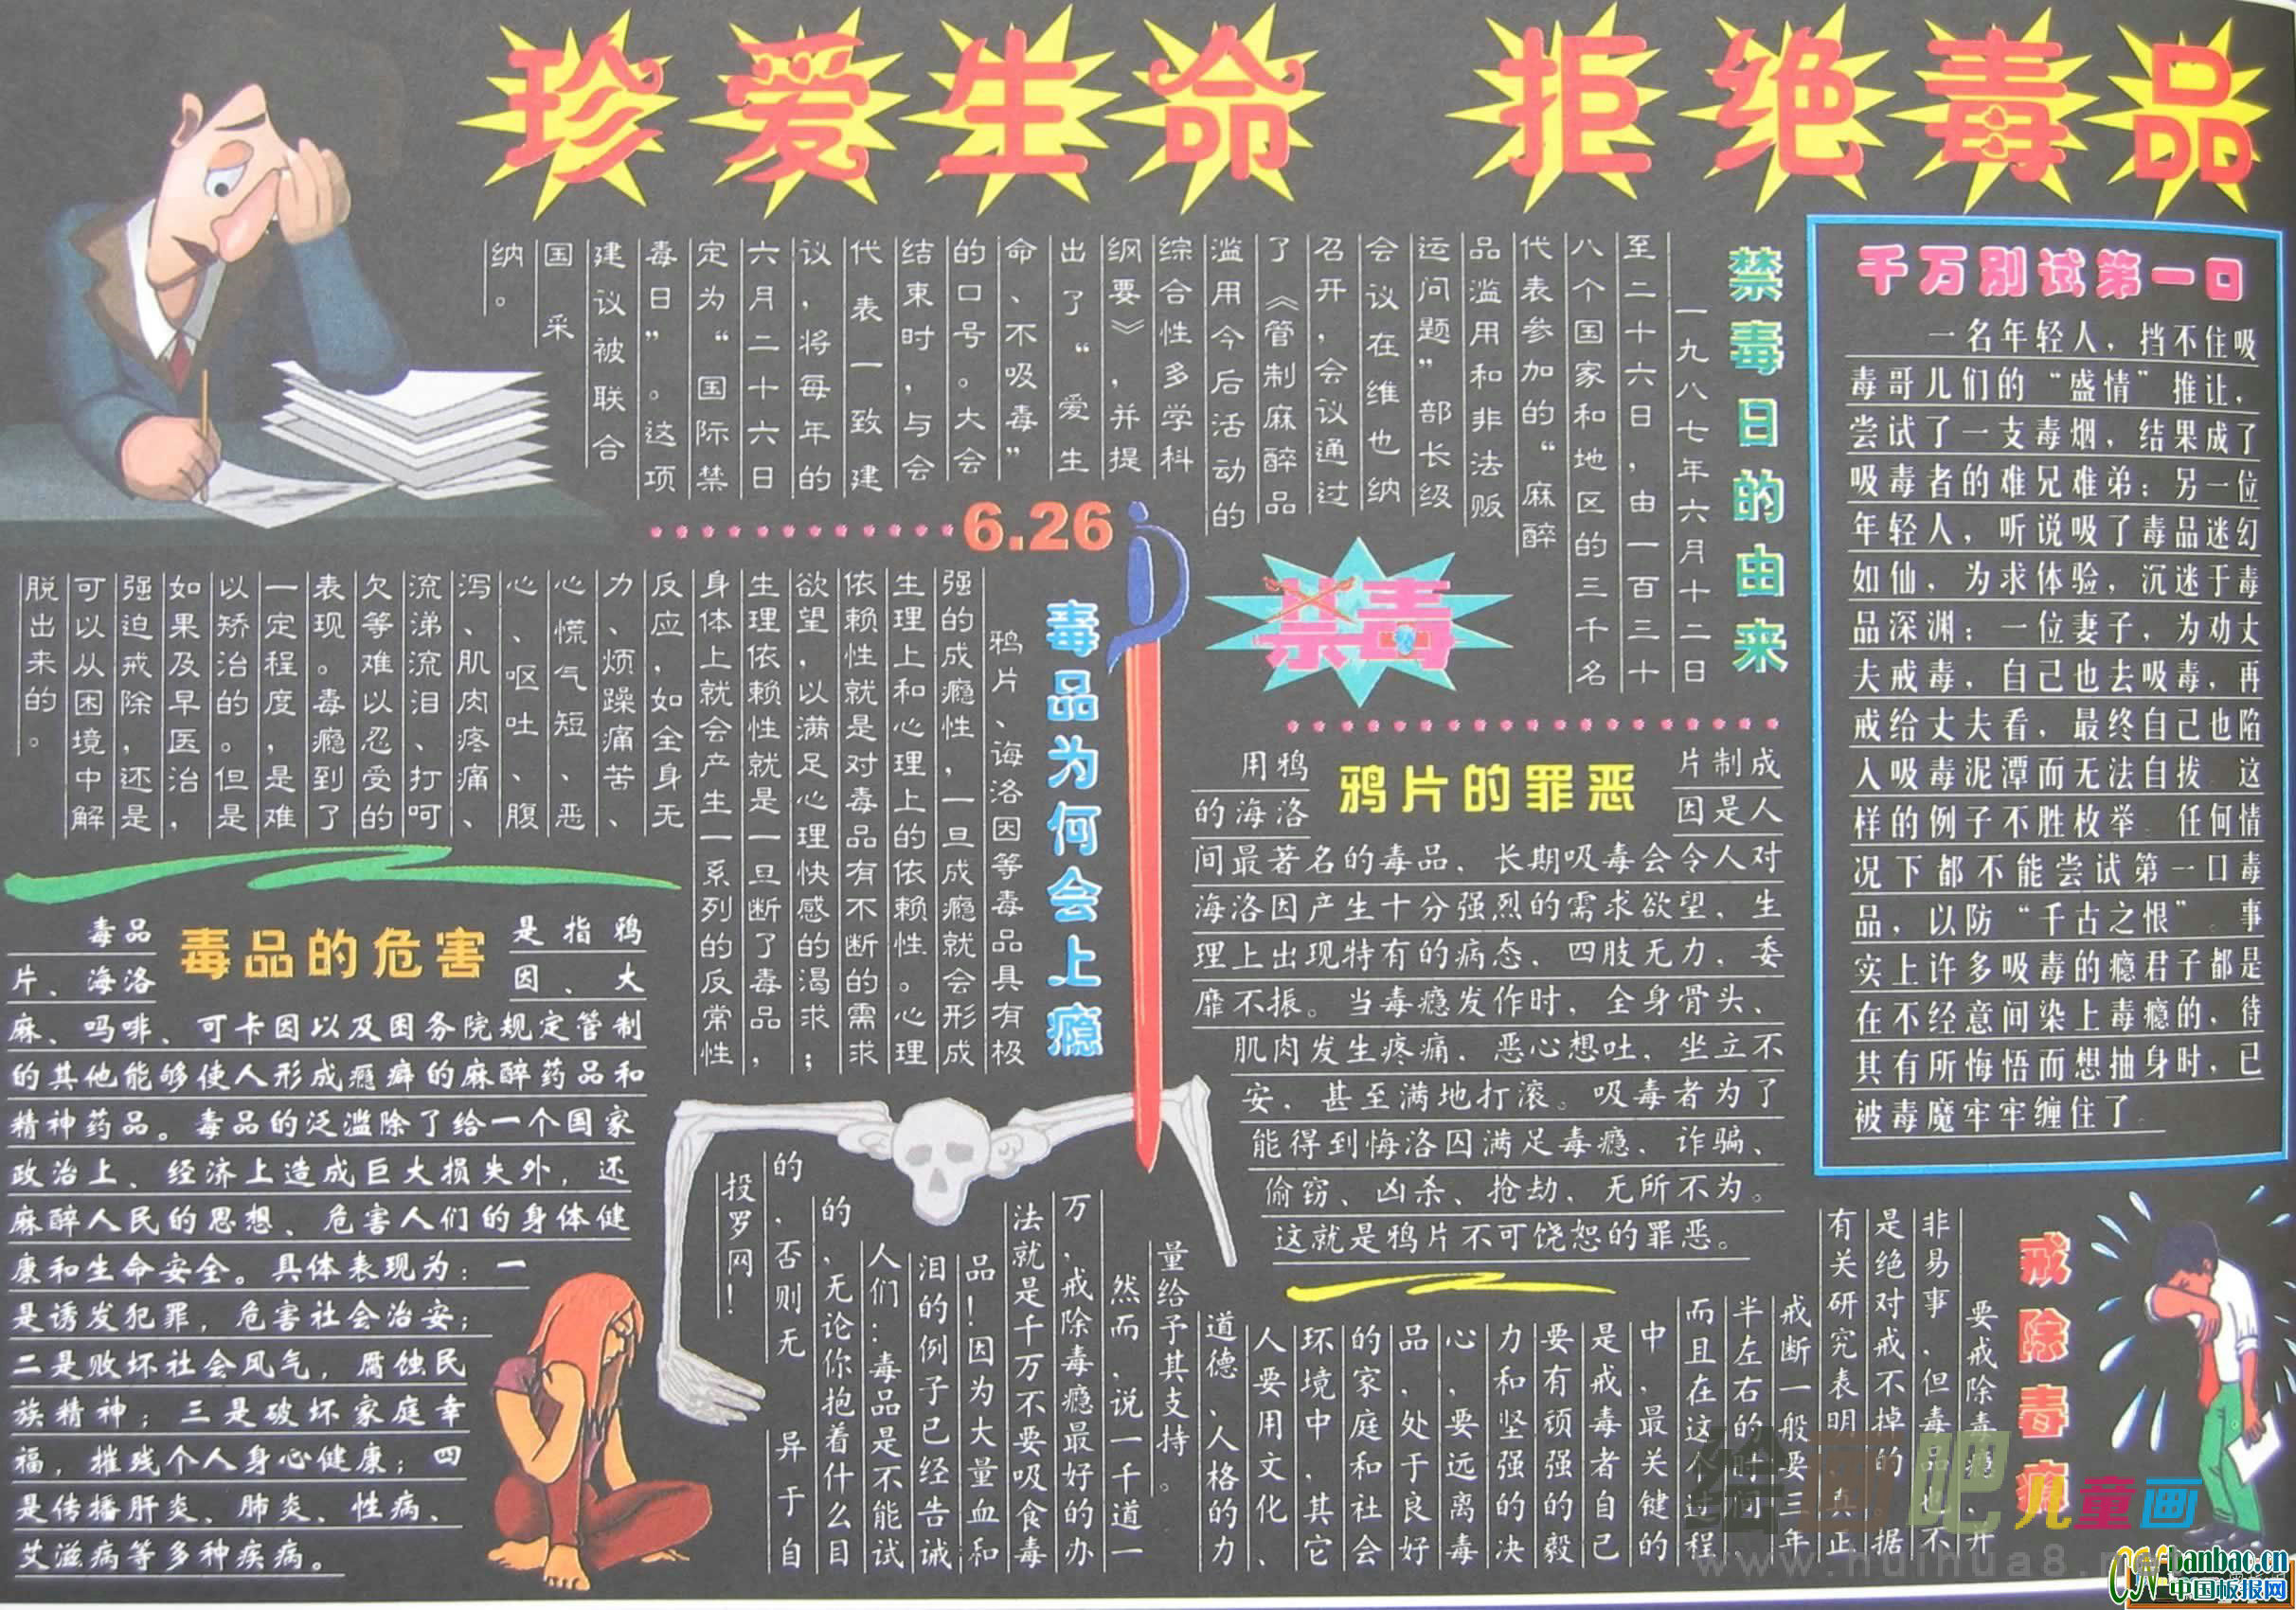 珍爱生命 拒绝毒品
千万别试第一口
一名年轻人，挡不住吸
毒哥儿们的“盛情”推让，
尝试了一支毒烟，结果成了
吸毒者的难兄难弟；另一位
年轻人，听说吸了毒品迷幻
如仙，为求体验，沉迷于毒
品深渊；一位妻子，为劝丈
夫戒毒，自己也去吸毒，再
戒给丈夫看，最终自己也陷
入吸毒泥潭而无法自拔 这
样的例子不胜枚举 任何情
况下都不能尝试第一口毒
品，以防“千古之恨”。事
实上许多吸毒的瘾君子都是
在不经意间染上毒瘾的，待
其有所悔悟而想抽身时，已
被毒魔牢牢缠住了
禁毒日的由来
一九八七年六月十二日
至二十六日，由一百三十
八个国家和地区的三千名
代表参加的“麻醉
品滥用和非法贩
运问题”部长级
会议在维也纳
召开，会议通过
了《管制麻醉品
滥用今后活动的
综合性多学科
纲要》，并提
出了“爱生
命、不吸毒”
的口号。大会
结束时，与会
代表一致建
议，将每年的
六月二十六日
定为“国际禁
毒日”。这项
建议被联合
国采
纳。
6.26
禁毒
毒品为何会上瘾
鸦片、海洛因等毒品具有极
强的成瘾性，一旦成瘾就会形成
生理上和心理上的依赖性。心理
依赖性就是对毒品有不断的需求
欲望，以满足心理快感的渴求；
生理依赖性就是一旦断了毒品，
身体上就会产生一系列的反常性
反应，如全身无
力、烦躁痛苦、
心慌气短、恶
心、呕吐、腹
泻、肌肉疼痛、
流涕流泪、打呵
欠等难以忍受的
表现。毒瘾到了
一定程度，是难
以矫治的。但是
如果及早医治，
强迫戒除，还是
可以从困境中解
脱出来的。
鸦片的罪恶
用鸦片制成
的海洛因是人
间最著名的毒品，长期吸毒会令人对
海洛因产生十分强烈的需求欲望，生
理上出现特有的病态，四肢无力，委
靡不振。当毒瘾发作时，全身骨头、
肌肉发生疼痛，恶心想吐，坐立不
安，甚至满地打滚。吸毒者为了
能得到悔洛因满足毒瘾，诈骗、
偷窃、凶杀、抢劫，无所不为。
这就是鸦片不可饶恕的罪恶。
毒品的危害
毒品是指鸦
片、海洛因、大
麻、吗啡、可卡因以及国务院规定管制
的其他能够使人形成瘾癖的麻醉药品和
精神药品。毒品的泛滥除了给一个国家
政治上、经济上造成巨大损失外，还
麻醉人民的思想、危害人们的身体健
康和生命安全。具体表现为：一
是诱发犯罪，危害社会治安；
二是败坏社会风气，腐蚀民
族精神；三是破坏家庭幸
福，摧残个人身心健康；四
是传播肝炎、肺炎、性病、
艾滋病等多种疾病。
戒除毒瘾
要戒除毒瘾，并
非易事，但毒品也不
是绝对戒不掉的 据
有关研究表明 真正
戒断一般要三年
半左右的时间，
而且在这个过程
中，最关键的
是戒毒者自己
要有顽强的毅
力和坚强的决
心，要远离毒
品，处于良好
的家庭和社会
环境中，其它
人要用文化、
道德、人格的力
量给予其支持。
然而，说一千道一
万，戒除毒瘾最好的办
法就是千万不要吸食毒
品！因为大量血和
泪的例子已经告诫
人们：毒品是不能试
的，无论你抱着什么目
的，否则无异于自
投罗网！
绘画吧儿童画
www.huihua8.net
banbao.cn
中国板报网